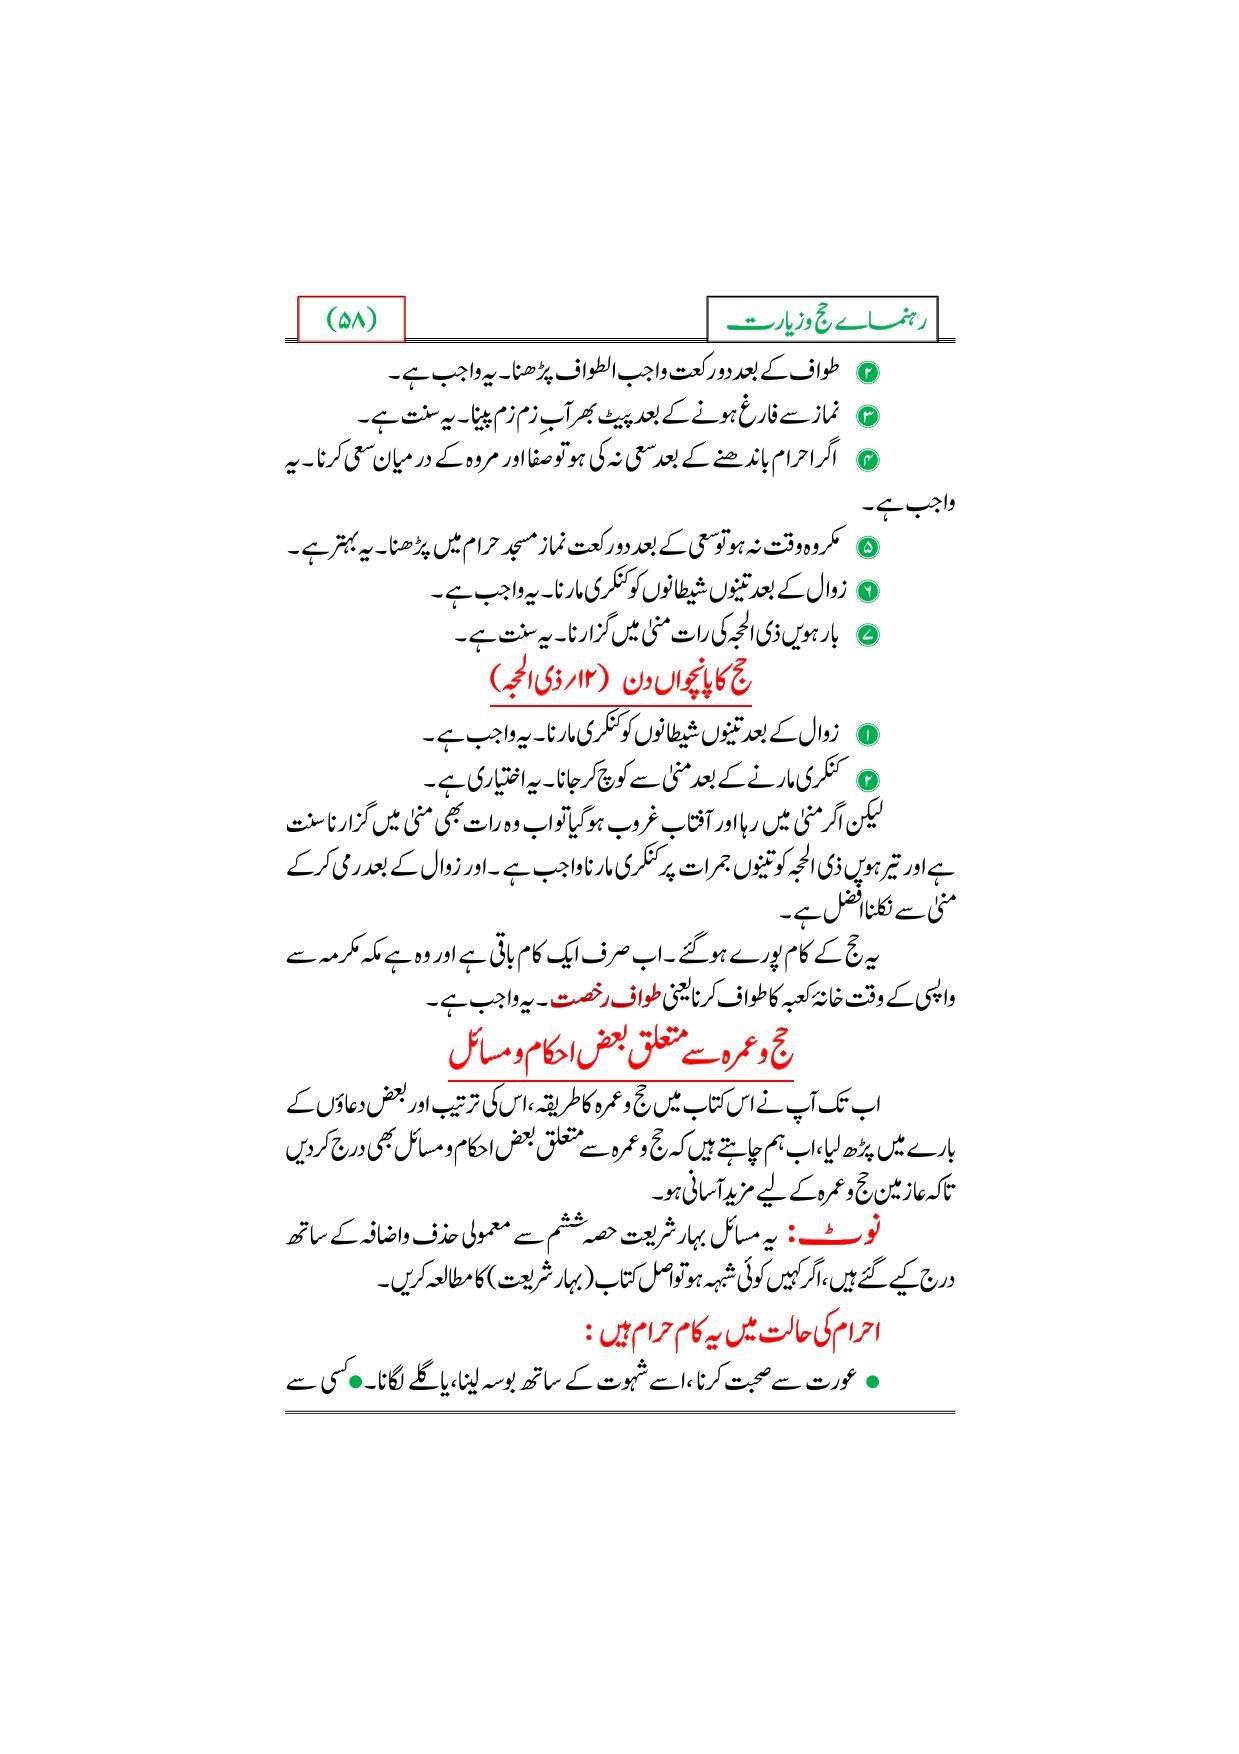 رہنماے حج وزیارت
(۵۸)
۲ طواف کے بعد دو رکعت واجب الطواف پڑھنا۔ یہ واجب ہے۔
۳ نماز سے فارغ ہونے کے بعد پیٹ بھر آبِ زم زم پینا۔ یہ سنت ہے۔
۴ اگر احرام باندھنے کے بعد سعی نہ کی ہو تو صفا اور مروہ کے درمیان سعی کرنا۔ یہ
واجب ہے۔
۵ مکروہ وقت نہ ہو تو سعی کے بعد دو رکعت نماز مسجد حرام میں پڑھنا۔ یہ بہتر ہے۔
۶ زوال کے بعد تینوں شیطانوں کو کنکری مارنا۔ یہ واجب ہے۔
۷ بارہویں ذی الحجہ کی رات منیٰ میں گزارنا۔ یہ سنت ہے۔
حج کا پانچواں دن (۱۲؍ ذی الحجہ)
۱ زوال کے بعد تینوں شیطانوں کو کنکری مارنا۔ یہ واجب ہے۔
۲ کنکری مارنے کے بعد منیٰ سے کوچ کر جانا۔ یہ اختیاری ہے۔
لیکن اگر منیٰ میں رہا اور آفتاب غروب ہو گیا تو اب وہ رات بھی منیٰ میں گزارنا سنت
ہے اور تیرہویں ذی الحجہ کو تینوں جمرات پر کنکری مارنا واجب ہے۔ اور زوال کے بعد رمی کر کے
منیٰ سے نکلنا افضل ہے۔
یہ حج کے کام پورے ہو گئے۔ اب صرف ایک کام باقی ہے اور وہ ہے مکہ مکرمہ سے
واپسی کے وقت خانۂ کعبہ کا طواف کرنا یعنی طواف رخصت۔ یہ واجب ہے۔
حج و عمرہ سے متعلق بعض احکام و مسائل
اب تک آپ نے اس کتاب میں حج و عمرہ کا طریقہ، اس کی ترتیب اور بعض دعاؤں کے
بارے میں پڑھ لیا، اب ہم چاہتے ہیں کہ حج و عمرہ سے متعلق بعض احکام و مسائل بھی درج کر دیں
تاکہ عازمین حج و عمرہ کے لیے مزید آسانی ہو۔
نوٹ: یہ مسائل بہار شریعت حصہ ششم سے معمولی حذف و اضافہ کے ساتھ
درج کیے گئے ہیں، اگر کہیں کوئی شبہہ ہو تو اصل کتاب (بہار شریعت) کا مطالعہ کریں۔
احرام کی حالت میں یہ کام حرام ہیں :
● عورت سے صحبت کرنا، اسے شہوت کے ساتھ بوسہ لینا، یا گلے لگانا۔ ● کسی سے